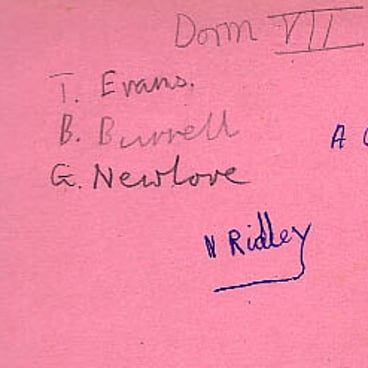 Dorm VII
T. Evans.
B. Burrell
G. Newlove
A
N Ridley